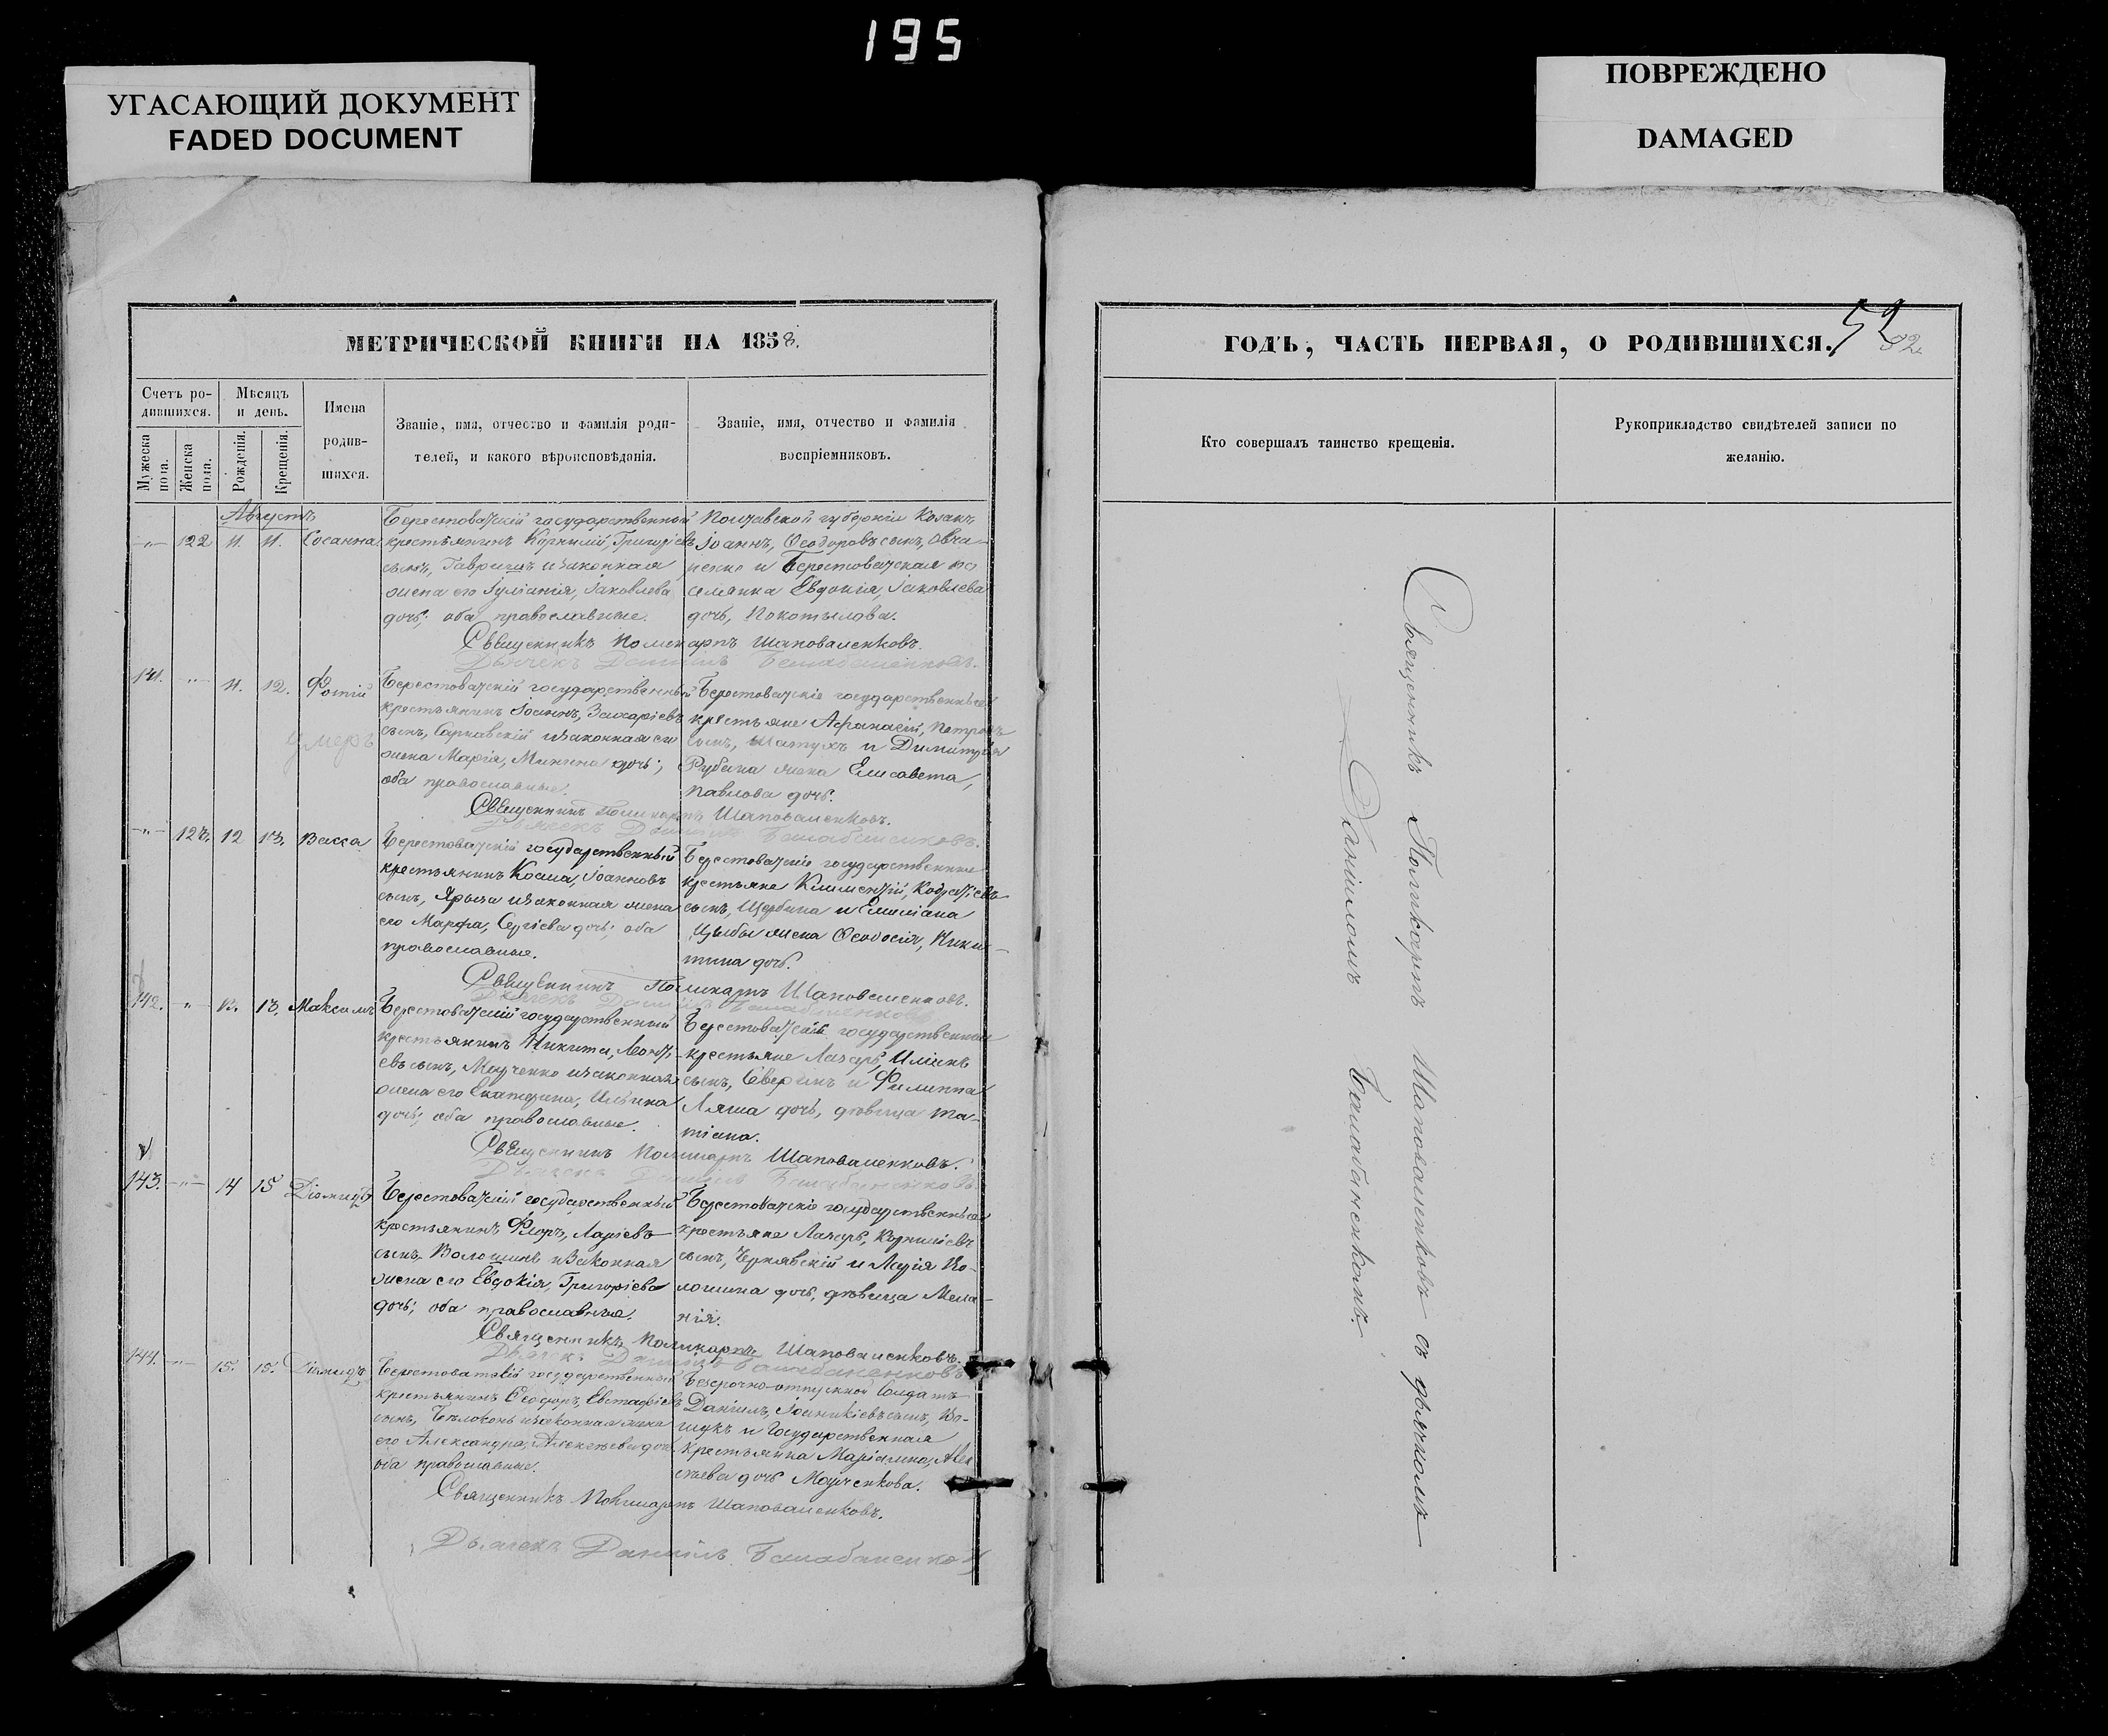 195
УГАСАЮЩИЙ ДОКУМЕНТ
FADED DOCUMENT
ПОВРЕЖДЕНО
DAMAGED
МЕТРИЧЕСКОЙ КНИГИ НА 1858.
Счетъ ро-
дившихся.
Мужеска
пола.
Женска
пола.
Мѣсяцъ
и день.
Рожденія.
Крещенія.
Имена
родив-
шихся.
Званіе, имя, отчество и фамилія роди-
телей, и какого вѣроисповѣданія.
Званіе, имя, отчество и фамилія
воспріемниковъ.
Августъ
122 11. 11. Сосанна
Берестоватскій государственной
крестьянинъ Корнилій, Григоріевъ
сынъ, Гавришъ и законная
жена его Іуліанія, Іаковлева
дочь; оба православные.
Полтавской губерніи Козакъ
Іоаннъ, Ѳеодоровъ сынъ, Овча-
ренко и Берестоватская по
селянка Евдокія, Іаковлева
дочь, Покотылова.
Священникъ Поликарпъ Шаповаленковъ.
Дьячекъ Даніилъ Балабаненковъ.
141. 11. 12. Фотій
умеръ
Берестоватскій государственный
крестьянинъ Іоаннъ, Захаріевъ
сынъ, Сарнавскій и законная его
жена Марія, Минина дочь;
оба православные.
Берестоватскіе государственные
крестьяне Афанасій, Петровъ
сынъ, Шатухъ и Димитрія
Рубана жена Елисавета,
Павлова дочь.
Священникъ Поликарпъ Шаповаленковъ.
Дьячекъ Даніилъ Балабаненковъ.
123. 12 13. Васса
Берестоватскій государственный
крестьянинъ Косма, Іоанновъ
сынъ, Ярыга и законная жена
его Марфа, Сергіева дочь; оба
православные.
Берестоватскіе государственные
крестьяне Климентій,
сынъ, Щербина и Емиліана
Цымбы жена Ѳеодосія, Ники-
тина дочь.
Священникъ Поликарпъ Шаповаленковъ.
Дьячекъ Даніилъ Балабаненковъ.
142. 12. 13. Максимъ
Берестоватскій государственный
крестьянинъ Никита, Леонті-
евъ сынъ, и законная
жена его Екатерина, Ильина
дочь; оба православные.
Берестоватскіе государственные
крестьяне Лазарь, Иліинъ
сынъ, Северинъ и Филиппа
Ляша дочь, дѣвица Та-
тіана.
Священникъ Поликарпъ Шаповаленковъ.
Дьячекъ Даніилъ Балабаненковъ.
143. 14 15 Діомидъ
Берестоватскій государственный
крестьянинъ Флоръ, Ларіевъ
сынъ, Волошинъ и законная
жена его Евдокія, Григоріева
дочь; оба православные.
Берестоватскіе государственные
крестьяне Лазарь, Корниліевъ
сынъ, Чернявскій и Ларія Во-
лошина дочь, дѣвица Мела-
нія.
Священникъ Поликарпъ Шаповаленковъ.
Дьячекъ Даніилъ Балабаненковъ.
144. 15. 15. Діомидъ
Берестоватскій государственный
крестьянинъ Ѳеодоръ, Евстафіевъ
сынъ, Бѣлоконь и законная жена
его Александра, Алексѣева дочь
оба православные.
Безсрочно-отпускной солдатъ
Даніилъ, Іоанникіевъ сынъ, Во-
щукъ и Государственная
Крестьянка Маріамна, Алек
сѣева дочь
Священникъ Поликарпъ Шаповаленковъ.
Дьячекъ Даніилъ Балабаненковъ
ГОДЪ, ЧАСТЬ ПЕРВАЯ, О РОДИВШИХСЯ.
52
52.
Кто совершалъ таинство крещенія.
Рукоприкладство свидѣтелей записи по
желанію.
Священникъ Поликарпъ Шаповаленковъ съ дьячкомъ
Даніиломъ Балабаненкомъ.